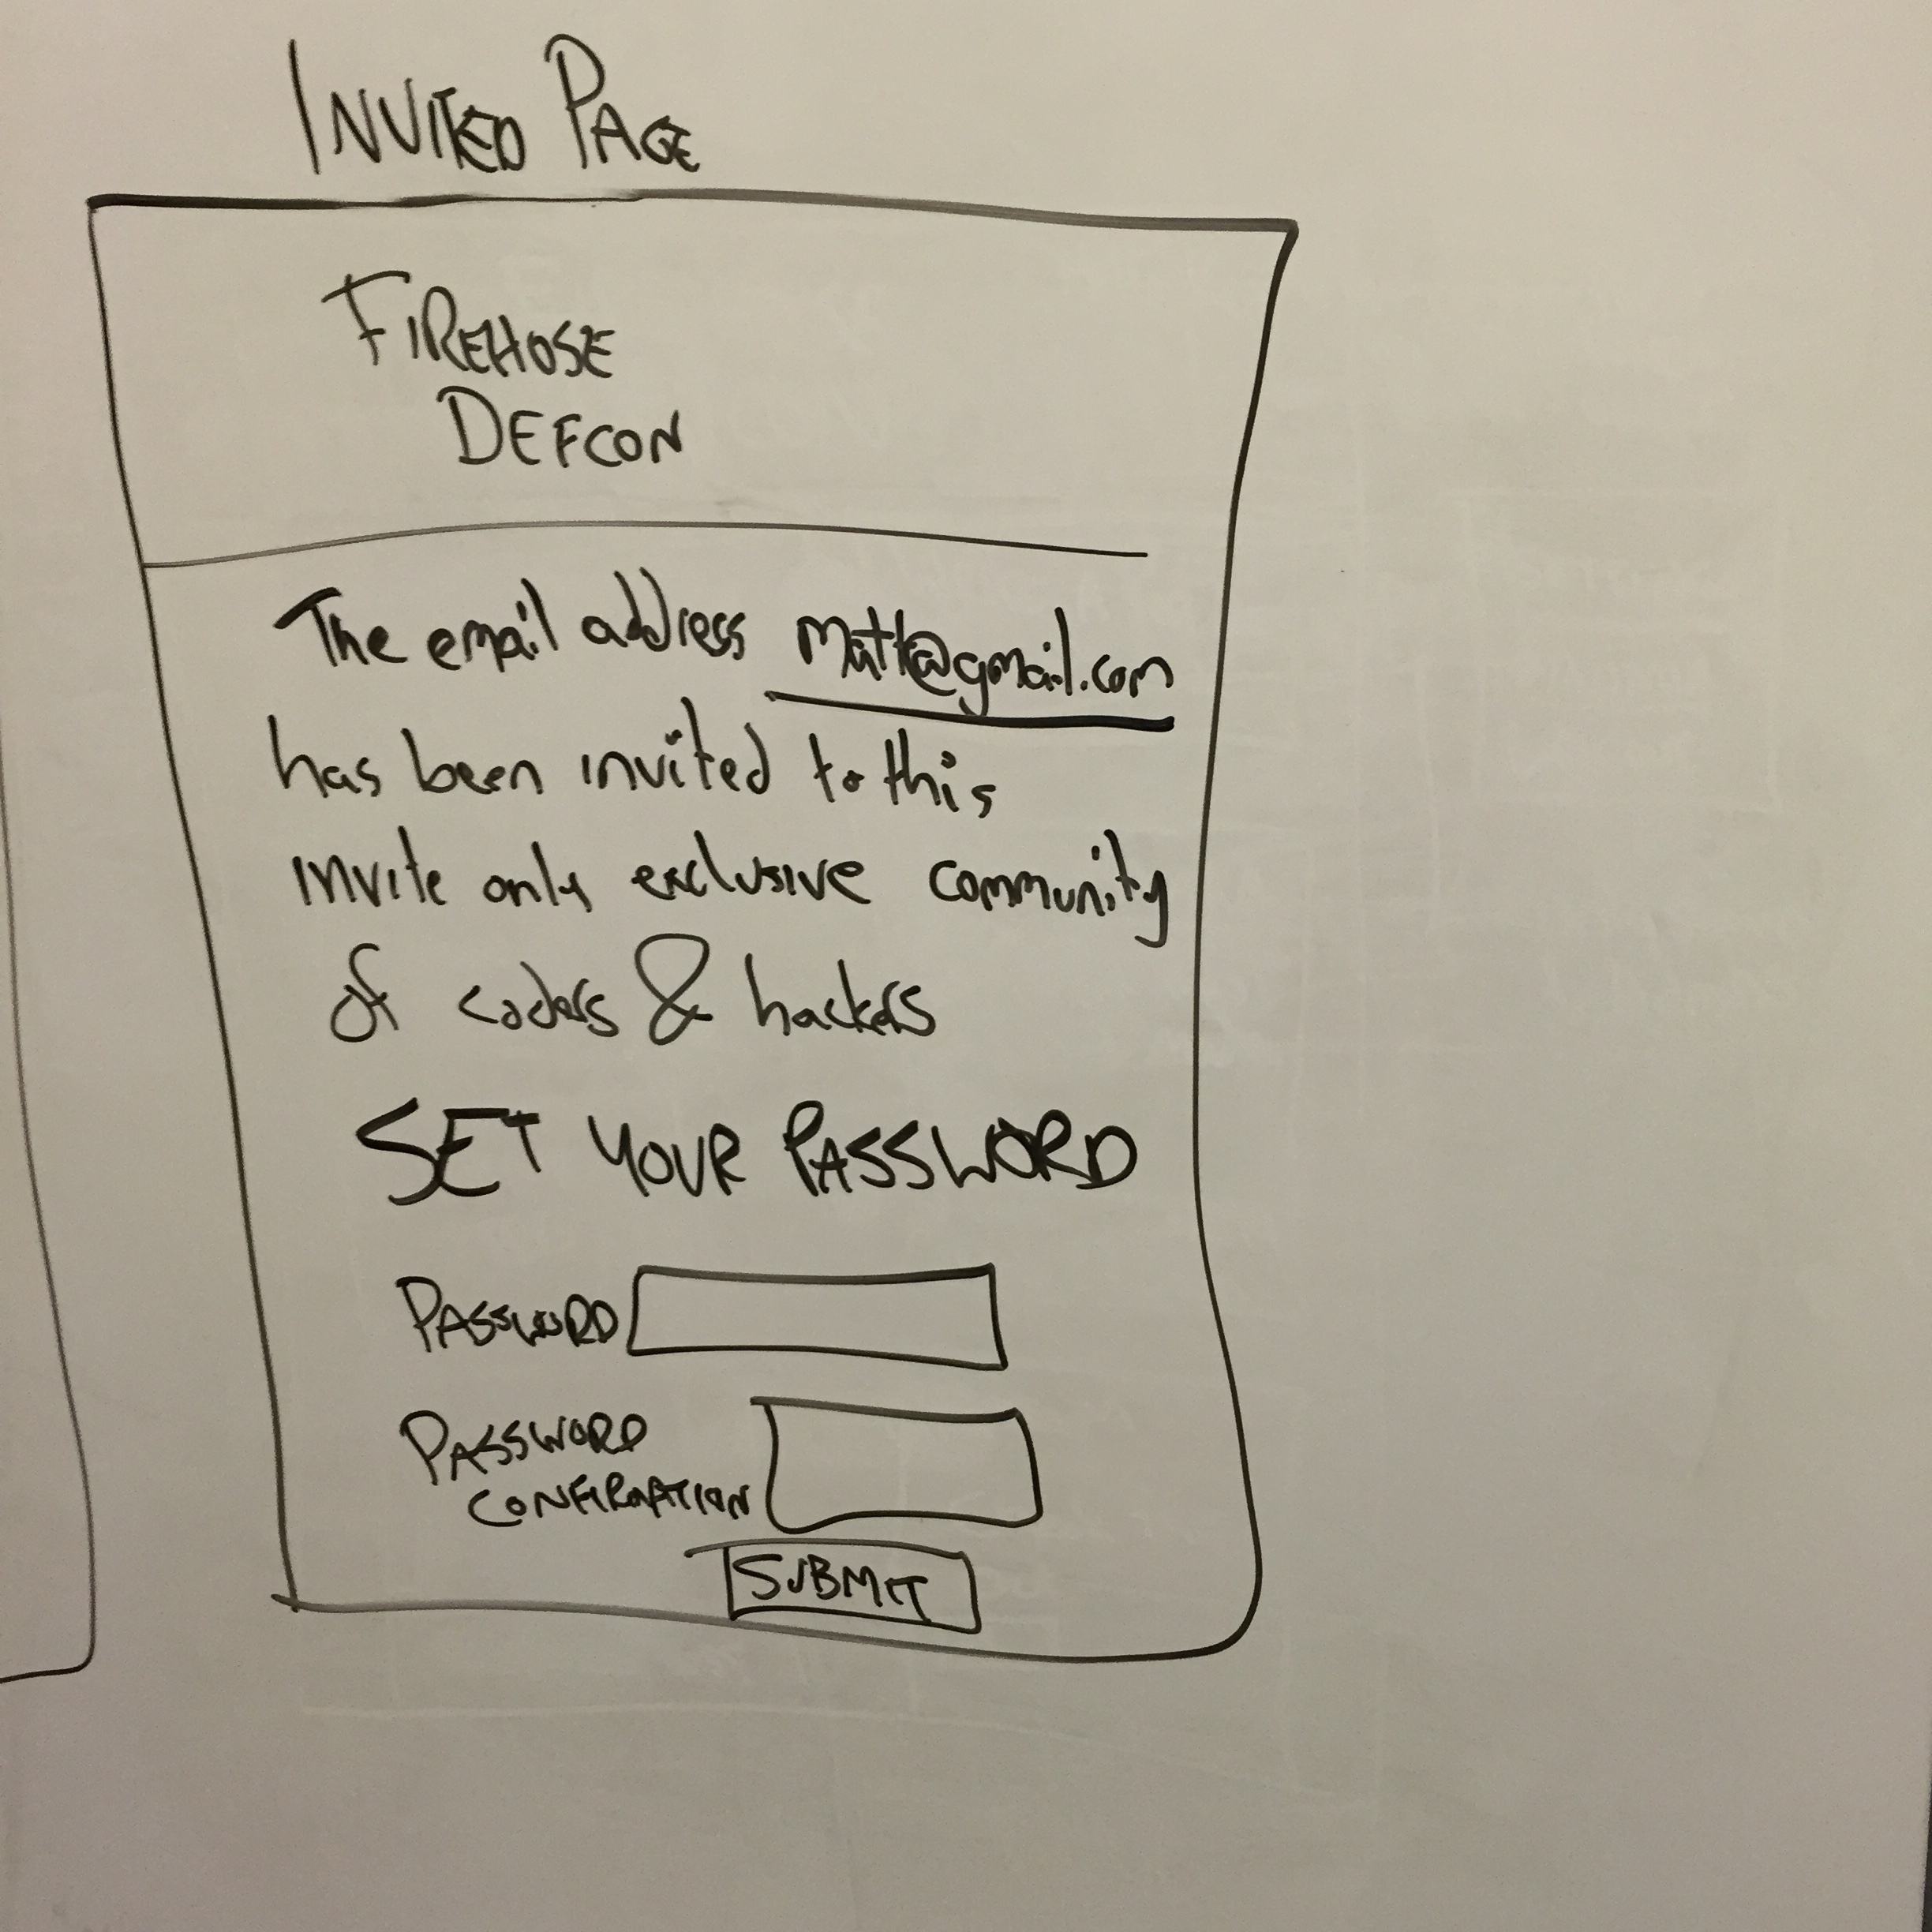 INVITED PAGE
FIREHOSE
DEFCON
The email address matt@gmail.com
has been invited to this
invite only exclusive community
of coders & hackers
SET YOUR PASSWORD
PASSWORD
PASSWORD
CONFIRMATION
SUBMIT